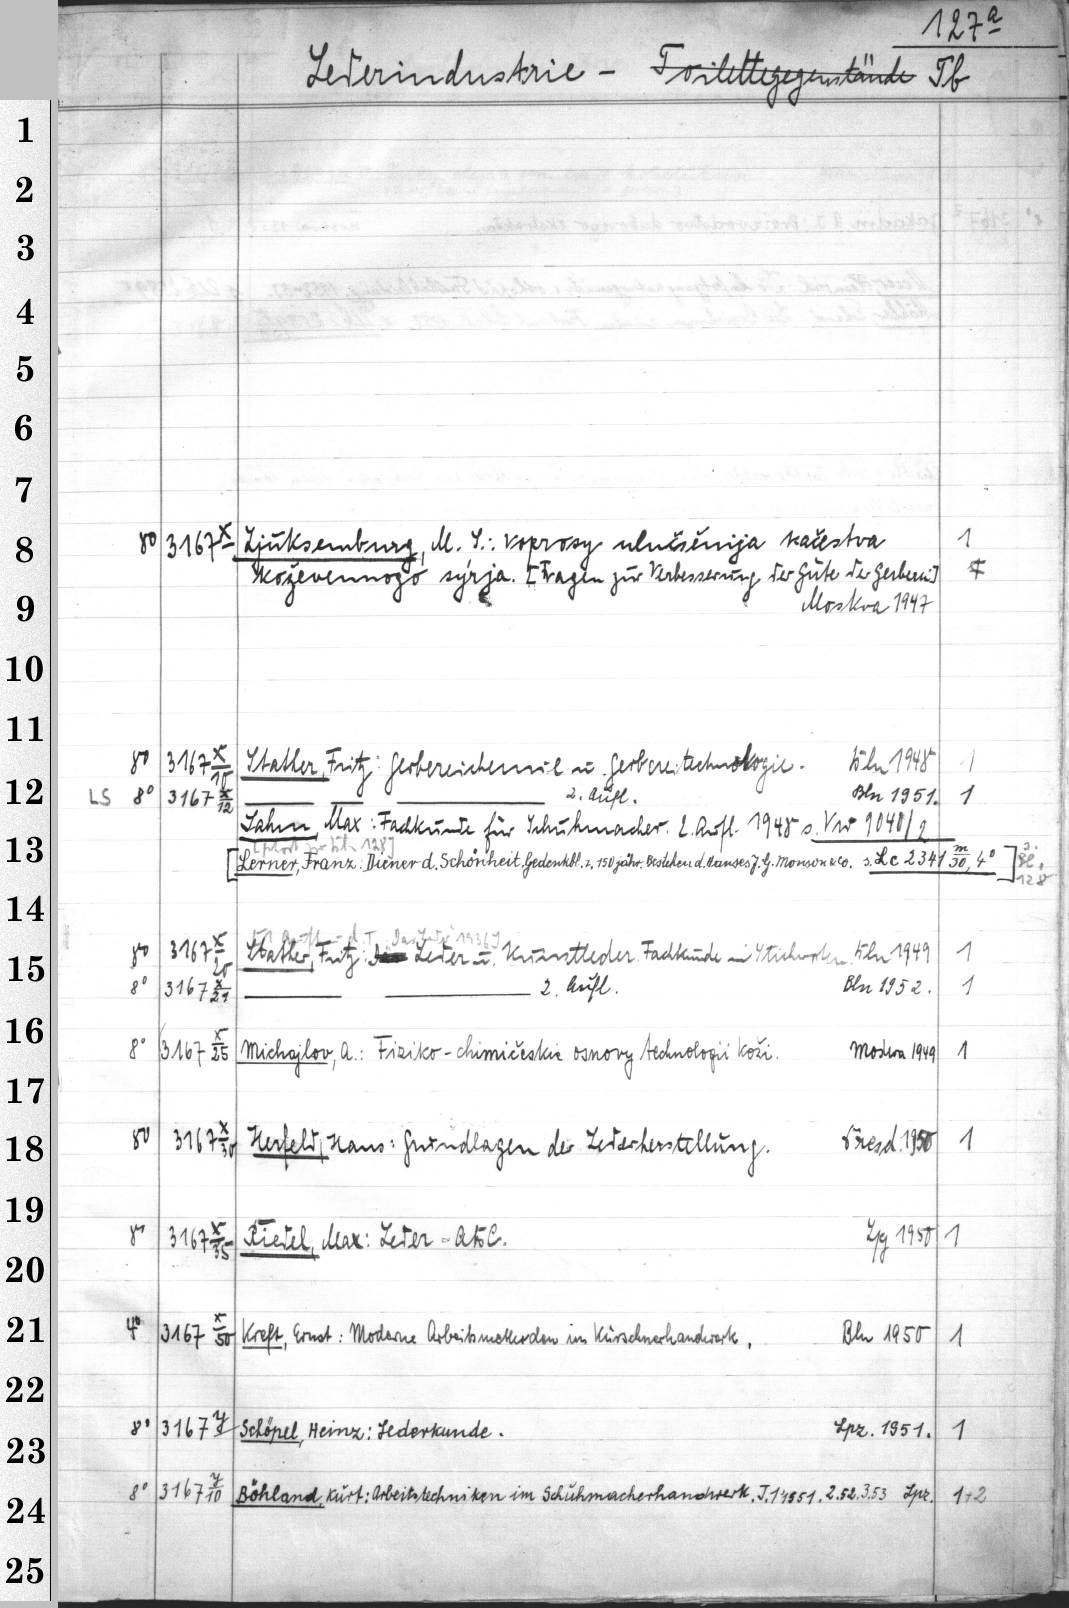 127a
Lederindustrie - Toilettegegenstände Tb
1
2
3
4
5
6
7
8
9
10
11
12
13
14
15
16
17
18
19
20
21
22
23
24
25
8° 3167 x Ljuksemburg, M. S.: Voprosy ulučšenija kačestva 1
koževennogo syrja. [Fragen zur Verbesserung der Güte der Gerberei]
Moskva 1947
8° 3167 x/10 Stather, Fritz: Gerbereichemie u. Gerbereitechnologie. Bln 1948 1
LS 8° 3167 x/12 2. Aufl. Bln 1951. 1
Sahm, Max: Fachkunde für Schuhmacher. 2. Aufl. 1948 s. Vw 9040/2
[Lerner, Franz: Diener d. Schönheit. Gedenkbl. z. 150 jähr. Bestehen d. Hauses J. G. Monson & Co. s. Lc 2341 m/30, 4°] s. Bl. 128
8° 3167 x/20 Stather, Fritz: Leder u. Kunstleder. Fachkunde in Stichworten. Bln 1949 1
8° 3167 x/21 2. Aufl. Bln 1952. 1
8° 3167 x/25 Michajlov, A.: Fiziko-chimičeskie osnovy technologii koži. Moskva 1949 1
8° 3167 x/30 Herfeld, Hans: Grundlagen der Lederherstellung. Dresd. 1950 1
8° 3167 x/35 Riedel, Max: Leder-ABC. Lpg 1950 1
4° 3167 x/50 Kreft, Ernst: Moderne Arbeitsmethoden im Kürschnerhandwerk. Bln 1950 1
8° 3167 y Schöpel, Heinz: Lederkunde. Lpz. 1951. 1
8° 3167 y/10 Böhland, Kurt: Arbeitstechniken im Schuhmacherhandwerk. T. 1 1951. 2.52. 3.53 Lpz. 1+2